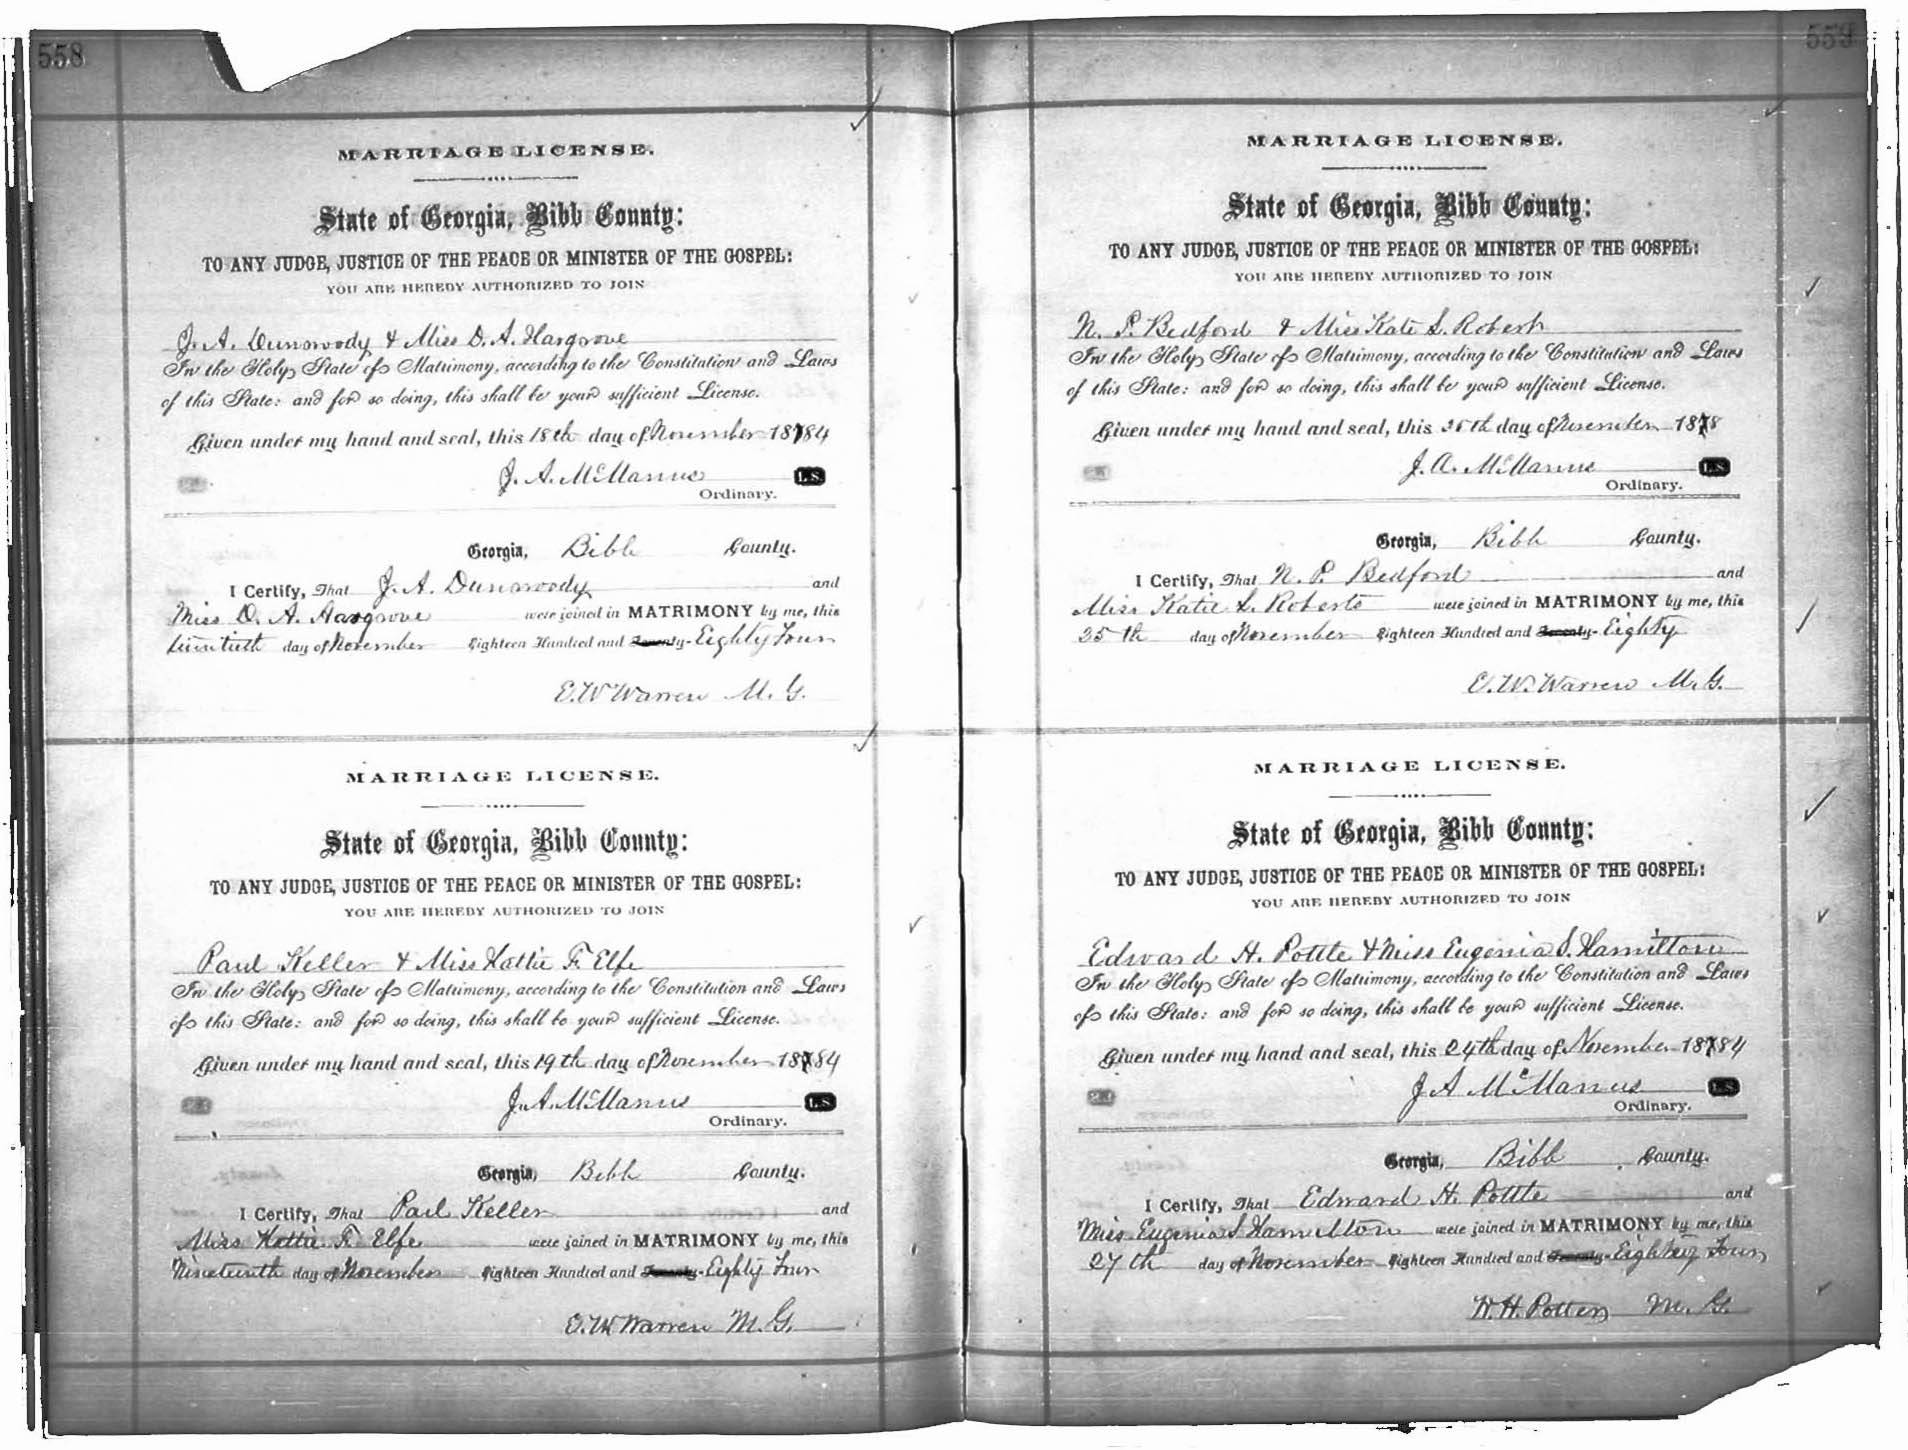 558
MARRIAGE LICENSE.
State of Georgia, Bibb County:
TO ANY JUDGE, JUSTICE OF THE PEACE OR MINISTER OF THE GOSPEL:
YOU ARE HEREBY AUTHORIZED TO JOIN
J. A. Dunwoody & Miss D. A. Hargrove
In the Holy State of Matrimony, according to the Constitution and Laws
of this State: and for so doing, this shall be your sufficient License.
Given under my hand and seal, this 18th day of November 18784
J. A. McManus L.S.
Ordinary.
Georgia, Bibb County.
I Certify, That J. A. Dunwoody and
Miss D. A. Hargrove were joined in MATRIMONY by me, this
twentieth day of November Eighteen Hundred and Seventy- Eighty Four
E. W. Warren M. G.
MARRIAGE LICENSE.
State of Georgia, Bibb County:
TO ANY JUDGE, JUSTICE OF THE PEACE OR MINISTER OF THE GOSPEL:
YOU ARE HEREBY AUTHORIZED TO JOIN
Paul Keller & Miss Hattie F. Elfe
In the Holy State of Matrimony, according to the Constitution and Laws
of this State: and for so doing, this shall be your sufficient License.
Given under my hand and seal, this 19th day of November 18784
J. A. McManus L.S.
Ordinary.
Georgia, Bibb County.
I Certify, That Paul Keller and
Miss Hattie F. Elfe were joined in MATRIMONY by me, this
Nineteenth day of November Eighteen Hundred and Seventy- Eighty Four
E. W. Warren M. G.
559
MARRIAGE LICENSE.
State of Georgia, Bibb County:
TO ANY JUDGE, JUSTICE OF THE PEACE OR MINISTER OF THE GOSPEL:
YOU ARE HEREBY AUTHORIZED TO JOIN
N. P. Bedford & Miss Kate S. Roberts
In the Holy State of Matrimony, according to the Constitution and Laws
of this State: and for so doing, this shall be your sufficient License.
Given under my hand and seal, this 25th day of November 1878
J. A. McManus L.S.
Ordinary.
Georgia, Bibb County.
I Certify, That N. P. Bedford and
Miss Katie S. Roberts were joined in MATRIMONY by me, this
25th day of November Eighteen Hundred and Seventy- Eighty
E. W. Warren M. G.
MARRIAGE LICENSE.
State of Georgia, Bibb County:
TO ANY JUDGE, JUSTICE OF THE PEACE OR MINISTER OF THE GOSPEL:
YOU ARE HEREBY AUTHORIZED TO JOIN
Edward H. Pottle & Miss Eugenia S. Hamilton
In the Holy State of Matrimony, according to the Constitution and Laws
of this State: and for so doing, this shall be your sufficient License.
Given under my hand and seal, this 24th day of November 18784
J A McManus L.S.
Ordinary.
Georgia, Bibb County.
I Certify, That Edward H. Pottle and
Miss Eugenia S Hamilton were joined in MATRIMONY by me, this
27th day of November Eighteen Hundred and Seventy- Eighty Four
W. H. Potter M. G.